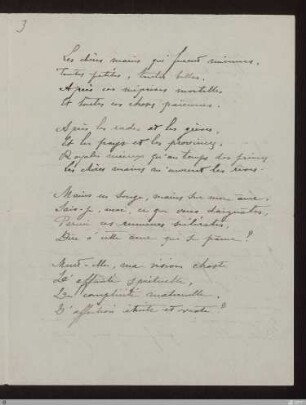 3
Les chères mains qui furent miennes,
Toutes petites, toutes belles,
Après ces méprises mortelles
Et toutes ces choses païennes,
Après les rades et les grèves,
Et les pays et les provinces,
Royales mieux qu'au temps des princes
Les chères mains m'ouvrent les rêves.
Mains en songe, mains sur mon âme,
Sais-je, moi, ce que vous daignâtes,
Parmi ces rumeurs scélérates,
Dire à cette âme qui se pâme ?
Ment-elle, ma vision chaste
D'affinité spirituelle,
De complicité maternelle,
D'affection étroite et vaste ?